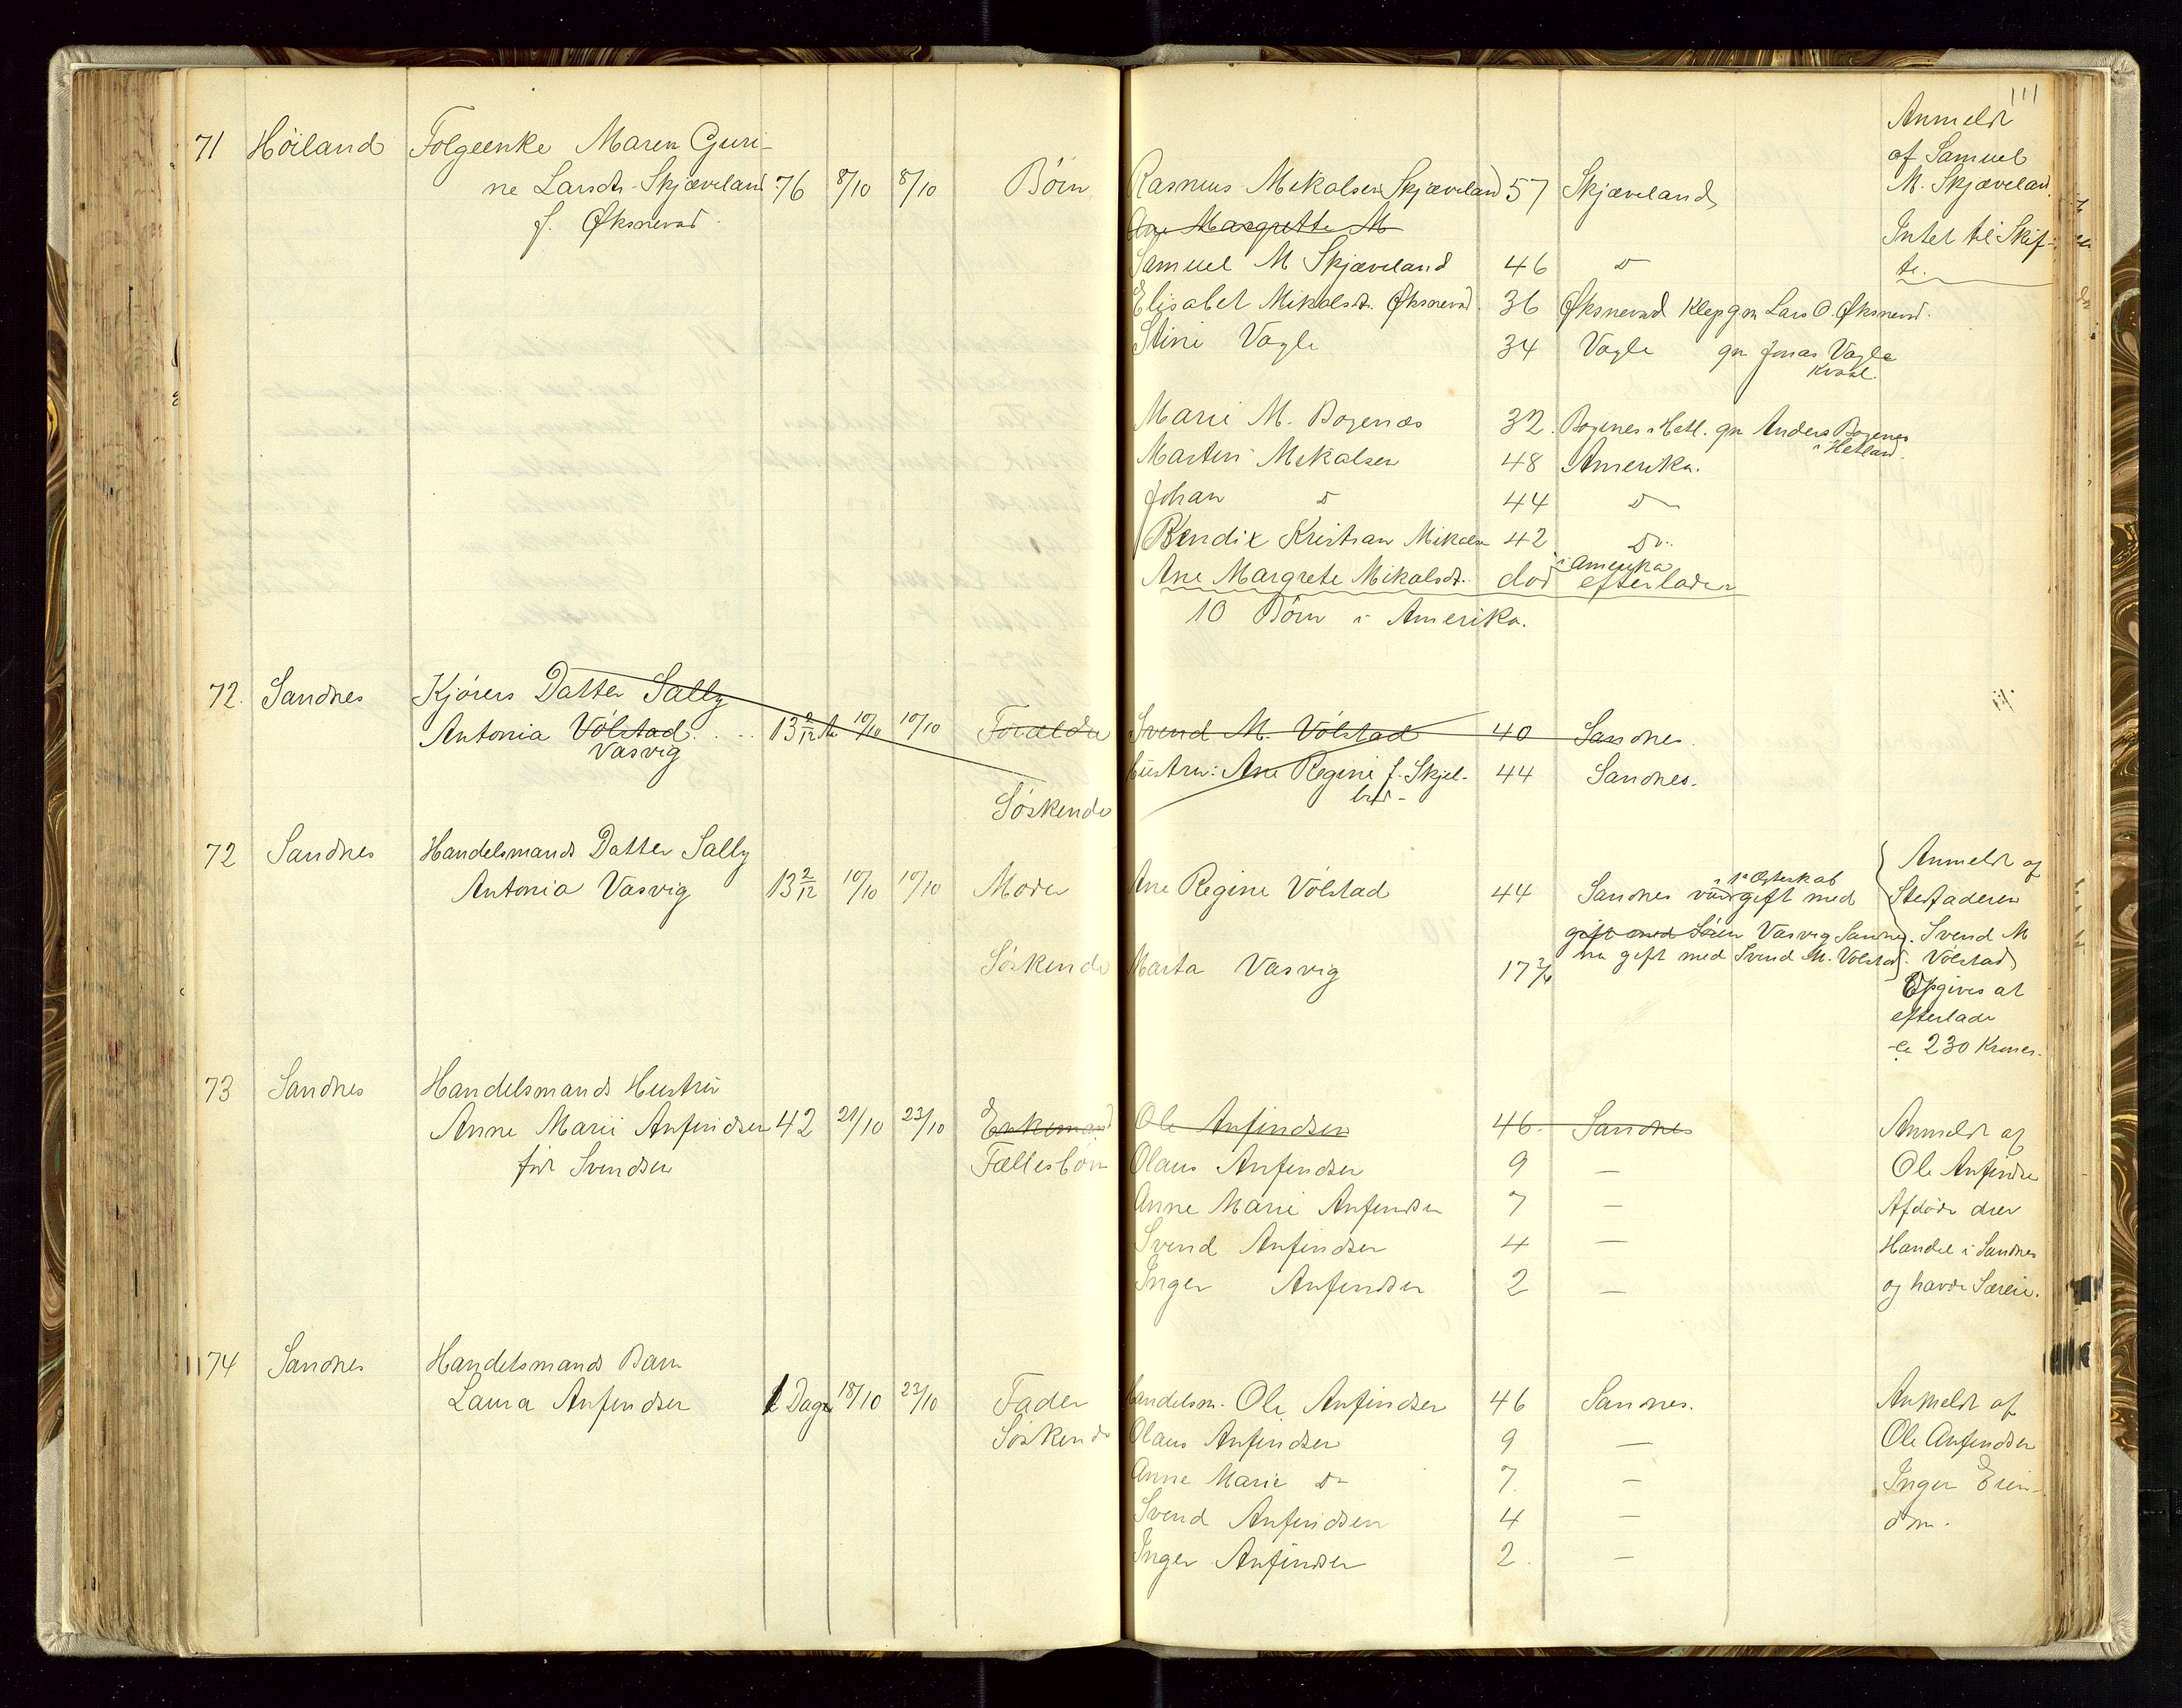 111
71 Höiland Folgeenke Maren Guri-
ne Larsdtr Skjæveland 76 8/10 8/10 Börn Rasmus Mikalsen Skjæveland 57 Skjæveland
f. Øksnevad
Ane Margrethe M
Samuel M Skjæveland 46 D
Elisabet Mikalsdt. Øksnevad. 36 Øksnevad Klep gm Lars O. Øksnevad.
Stine Vagle 34 Vagle gm Jonas Vagle
Kvaal.
Marie M. Bogenæs 32. Bogenes i Hetl. gm Anders Bogenes
i Hetland.
Martin Mikalsen 48 Amerika.
Johan D 44 D
Bendix Kristian Mikalsn 42 Do.
Ane Margrete Mikalsdt. död i Amerika efterlader
10 Börn i Amerika.
Anmeldt
af Samuel
M. Skjæveland.
Intet til Skif-
te.
72. Sandnes Kjörers Datter Sally
Antonia Völstad. 13 2/12 10/10 10/10 Forældre Svend M. Völstad 40 Sandnes.
Vasvig
Hustru: Ane Regine f. Skjel-
44 Sandnes.
Söskende
72 Sandnes Handelsmands Datter Sally
Antonia Vasvig 13 2/12 10/10 10/10 Moder Ane Regine Völstad 44 Sandnes var i 1ste Ægteskab gift med
gift med Sören Vasvig Sandnes.
nu gift med Svend M. Völstad
Söskende Marta Vasvig 17 3/4
Anmeldt af
Stedfaderen
Svend M
Völstad
Opgives at
efterlade
ca 230 Kroner.
73 Sandnes Handelsmands Hustru
Anne Marie Anfindsen 42 21/10 23/10 Enkemand Ole Anfindsen 46. Sandnes
föd Svendsen Fællesbörn Olaus Anfindsen 9 —
Anne Marie Anfindsen 7 —
Svend Anfindsen 4 —
Inger Anfindsen 2 —
Anmeldt af
Ole Anfindsen
Afdöde drev
Handel i Sandnes
og havde Særeie.
74 Sandnes Handelsmands Barn
Laura Anfindsen 1 Dage 18/10 23/10 Fader Handelsm. Ole Anfindsen 46 Sandnes.
Söskende Olaus Anfindsen 9 —
Anne Marie Do 7. —
Svend Anfindsen 4 —
Inger Anfindsen 2. —
Anmeldt af
Ole Anfindsen
Ingen Eien-
dom.